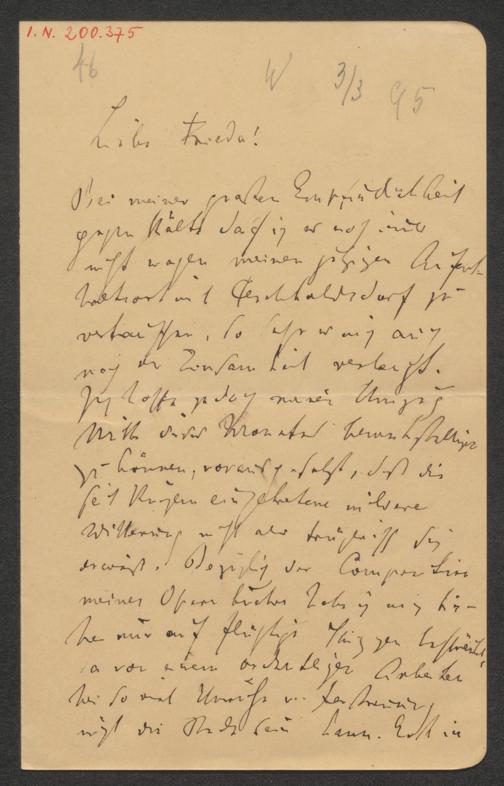 I. N. 200.375
46 W 3/3 95
Liebe Frieda!
Bei meiner großen Empfindlichkeit
gegen Kälte darf ich es noch immer
nicht wagen meinen jetzigen Aufent-
haltsort mit Perchtoldsdorf zu
vertauschen, so sehr es mich auch
nach der Einsamkeit verlangt.
Ich hoffe jedoch meinen Umzug
Mitte dieses Monates bewerkstelligen
zu können, vorausgesetzt, daß die
seit Kurzem eingetretene mildere
Witterung nicht als trügerisch sich
erweist. Bezüglich der Composition
meines Opernbuches habe ich mich bis-
her nur auf flüchtige Skizzen beschränkt,
da von einem ordentlichen Arbeiten
bei so viel Unruhe u. Zerstreuung
nicht die Rede sein kann. Erst in